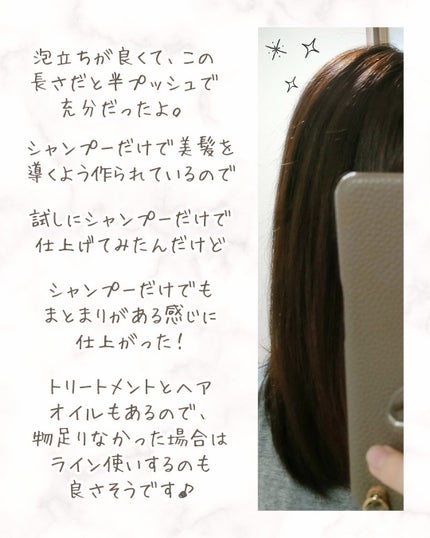 泡立ちが良くて、この
長さだと半プッシュで
充分だったよ。
シャンプーだけで美髪を
導くよう作られているので
試しにシャンプーだけで
仕上げてみたんだけど
シャンプーだけでも
まとまりがある感じに
仕上がった!
トリートメントとヘア
オイルもあるので、
物足りなかった場合は
ライン使いするのも
良さそうです♪